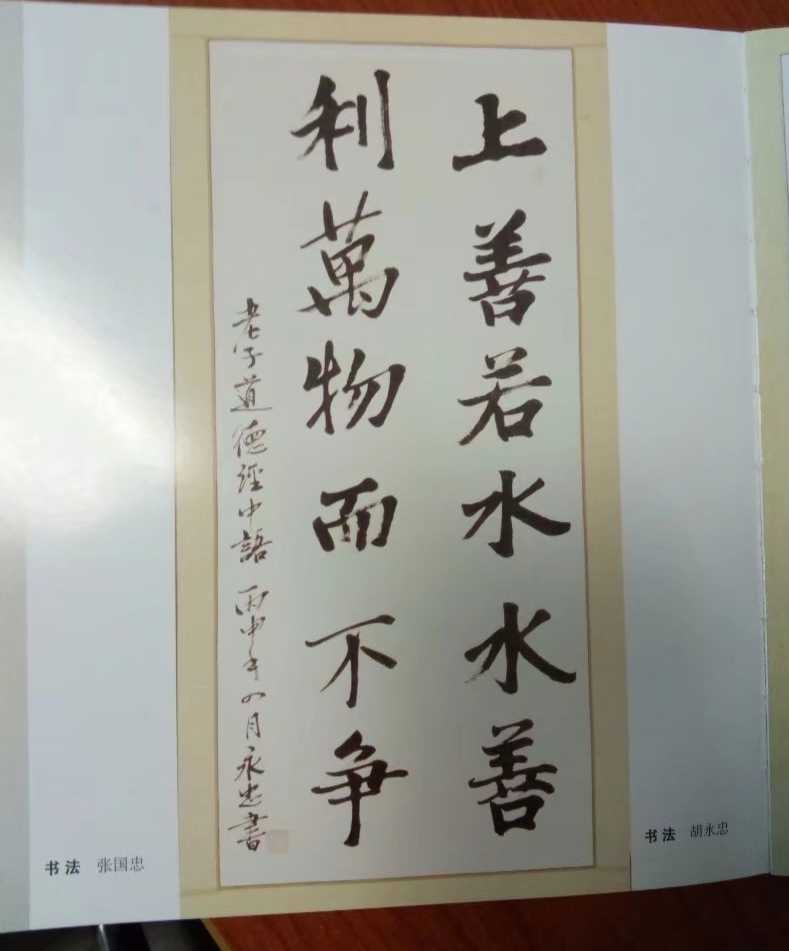 上善若水水善
利萬物而不争
老子道德經中語 丙申年四月永忠書
书法 张国忠
书法 胡永忠